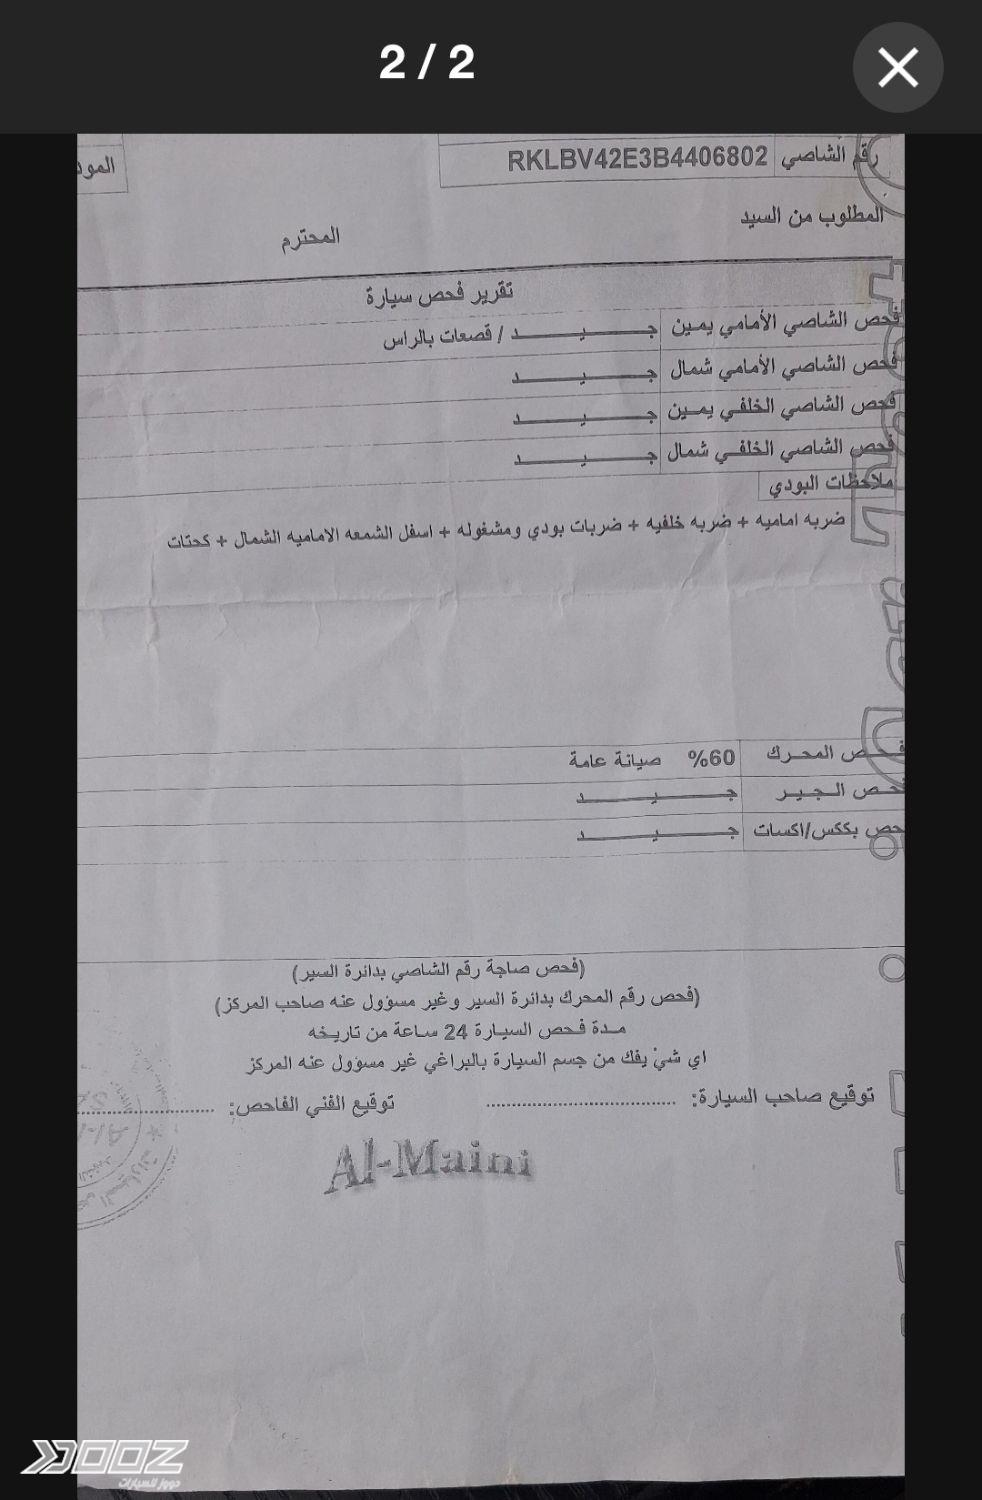 2 / 2
رقم الشاصي RKLBV42E3B4406802
المطلوب من السيد المحترم
تقرير فحص سيارة
فحص الشاصي الأمامي يمين جـــيـــد / قصعات بالراس
فحص الشاصي الأمامي شمال جـــيـــد
فحص الشاصي الخلفي يمين جـــيـــد
فحص الشاصي الخلفي شمال جـــيـــد
ملاحظات البودي
ضربه اماميه + ضربه خلفيه + ضربات بودي ومشغوله + اسفل الشمعه الاماميه الشمال + كحتات
فحص المحرك 60% صيانة عامة
فحص الجير جـــيـــد
فحص بككس/اكسات جـــيـــد
(فحص صاجة رقم الشاصي بدائرة السير)
(فحص رقم المحرك بدائرة السير وغير مسؤول عنه صاحب المركز)
مدة فحص السيارة 24 ساعة من تاريخه
اي شيْ يفك من جسم السيارة بالبراغي غير مسؤول عنه المركز
توقيع صاحب السيارة: ........................ توقيع الفني الفاحص: ........................
Al-Maini
DOOZ
دووز للسيارات